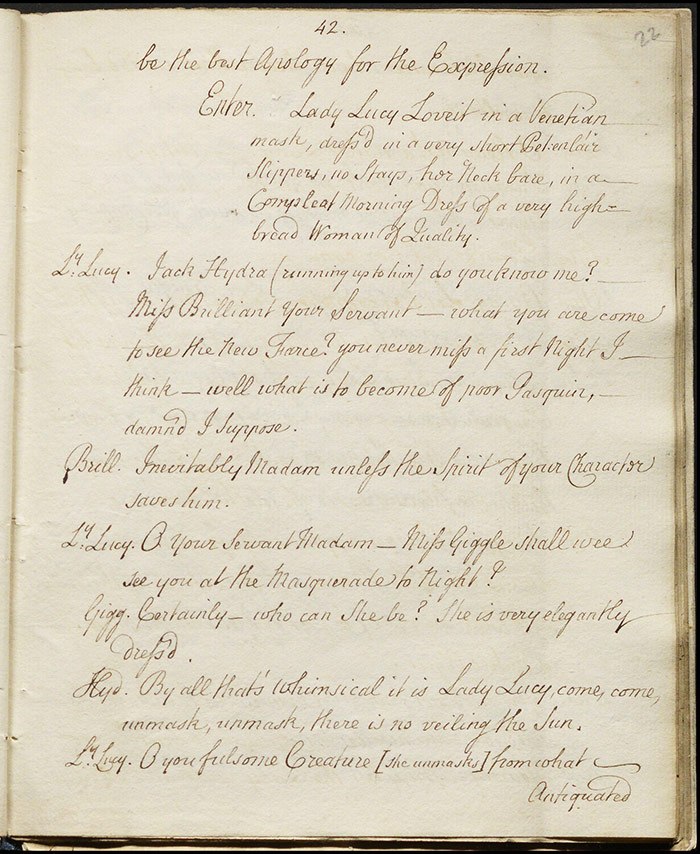 42.
22
be the best Apology for the Expreſsion.
Enter. Lady Lucy Loveit in a Venetian
mask, dreſs'd in a very short Pet:enlair
Slippers, no Stays, her Neck bare, in a
Compleat Morning Dreſs of a very high=
bread Woman of Quality.
Ly. Lucy. Jack Hydra (running up to him) do you know me?
Miſs Brilliant Your Servant — what you are come
to see the New Farce? you never miſs a first Night I
think — well what is to become of poor Pasquin,
damn'd I suppose.
Brill. Inevitably Madam unleſs the Spirit of your Character
saves him.
Ly. Lucy. O Your Servant Madam — Miſs Giggle shall wee
see you at the Masquerade to Night?
Gigg. Certainly — who can She be? She is very elegantly
dreſs'd.
Hyd. By all that's whimsical it is Lady Lucy, come, come,
unmask, unmask, there is no veiling the Sun.
Ly. Lucy. O you fulsome Creature [she unmasks] from what
Antiquated